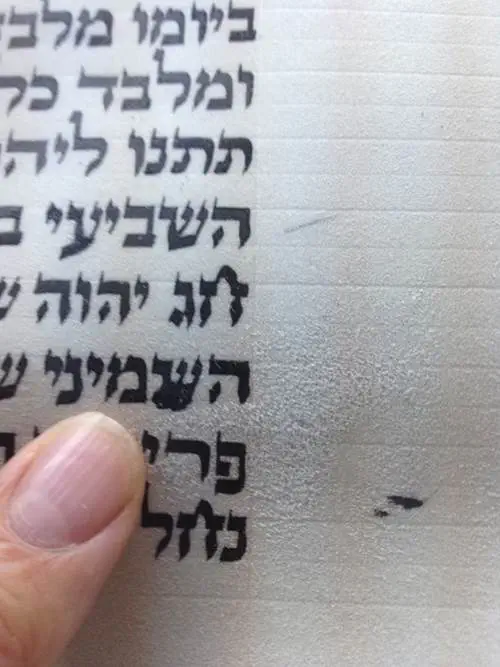 ביומו מלבד
ומלבד כל
תתנו ליהו
השביעי ב
חג יהוה ש
השמיני ש
פרי
נחל